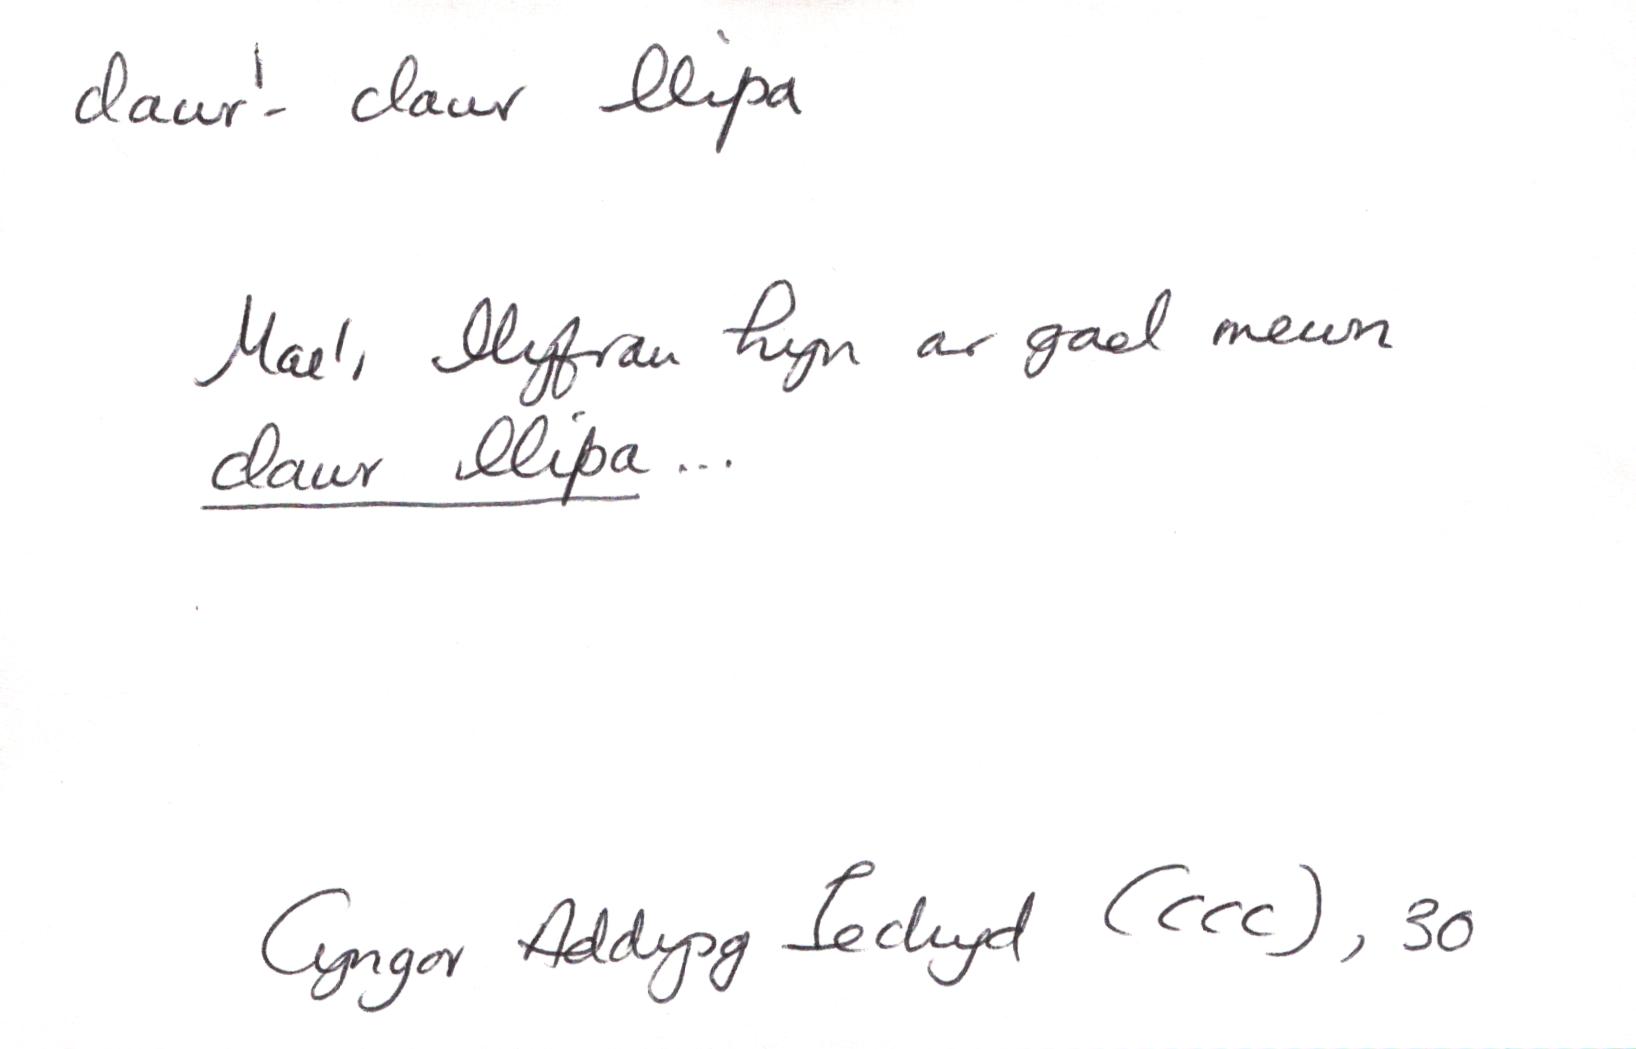 clawr¹- clawr llipa
Mae'r llyfrau hyn ar gael mewn
clawr llipa...
Cyngor Addysg Iechyd (CCC), 30